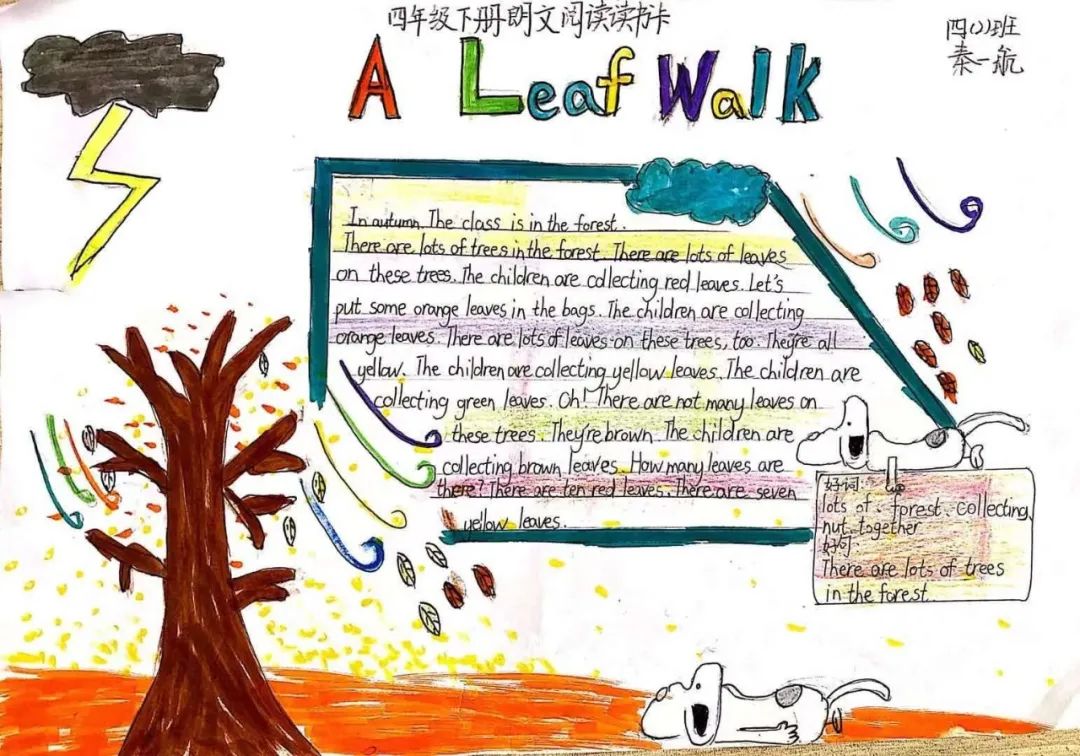 四年级下册朗文阅读读书卡
四(2)班
秦一航
A Leaf Walk
In autumn. The class is in the forest.
There are lots of trees in the forest. There are lots of leaves
on these trees. The children are collecting red leaves. Let's
put some orange leaves in the bags. The children are collecting
orange leaves. There are lots of leaves on these trees, too. They're all
yellow. The children are collecting yellow leaves. The children are
collecting green leaves. Oh! There are not many leaves on
these trees. They're brown. The children are
collecting brown leaves. How many leaves are
there? There are ten red leaves. There are seven
yellow leaves.
好词:
lots of、forest、collecting、
nut、together
好句:
There are lots of trees
in the forest.